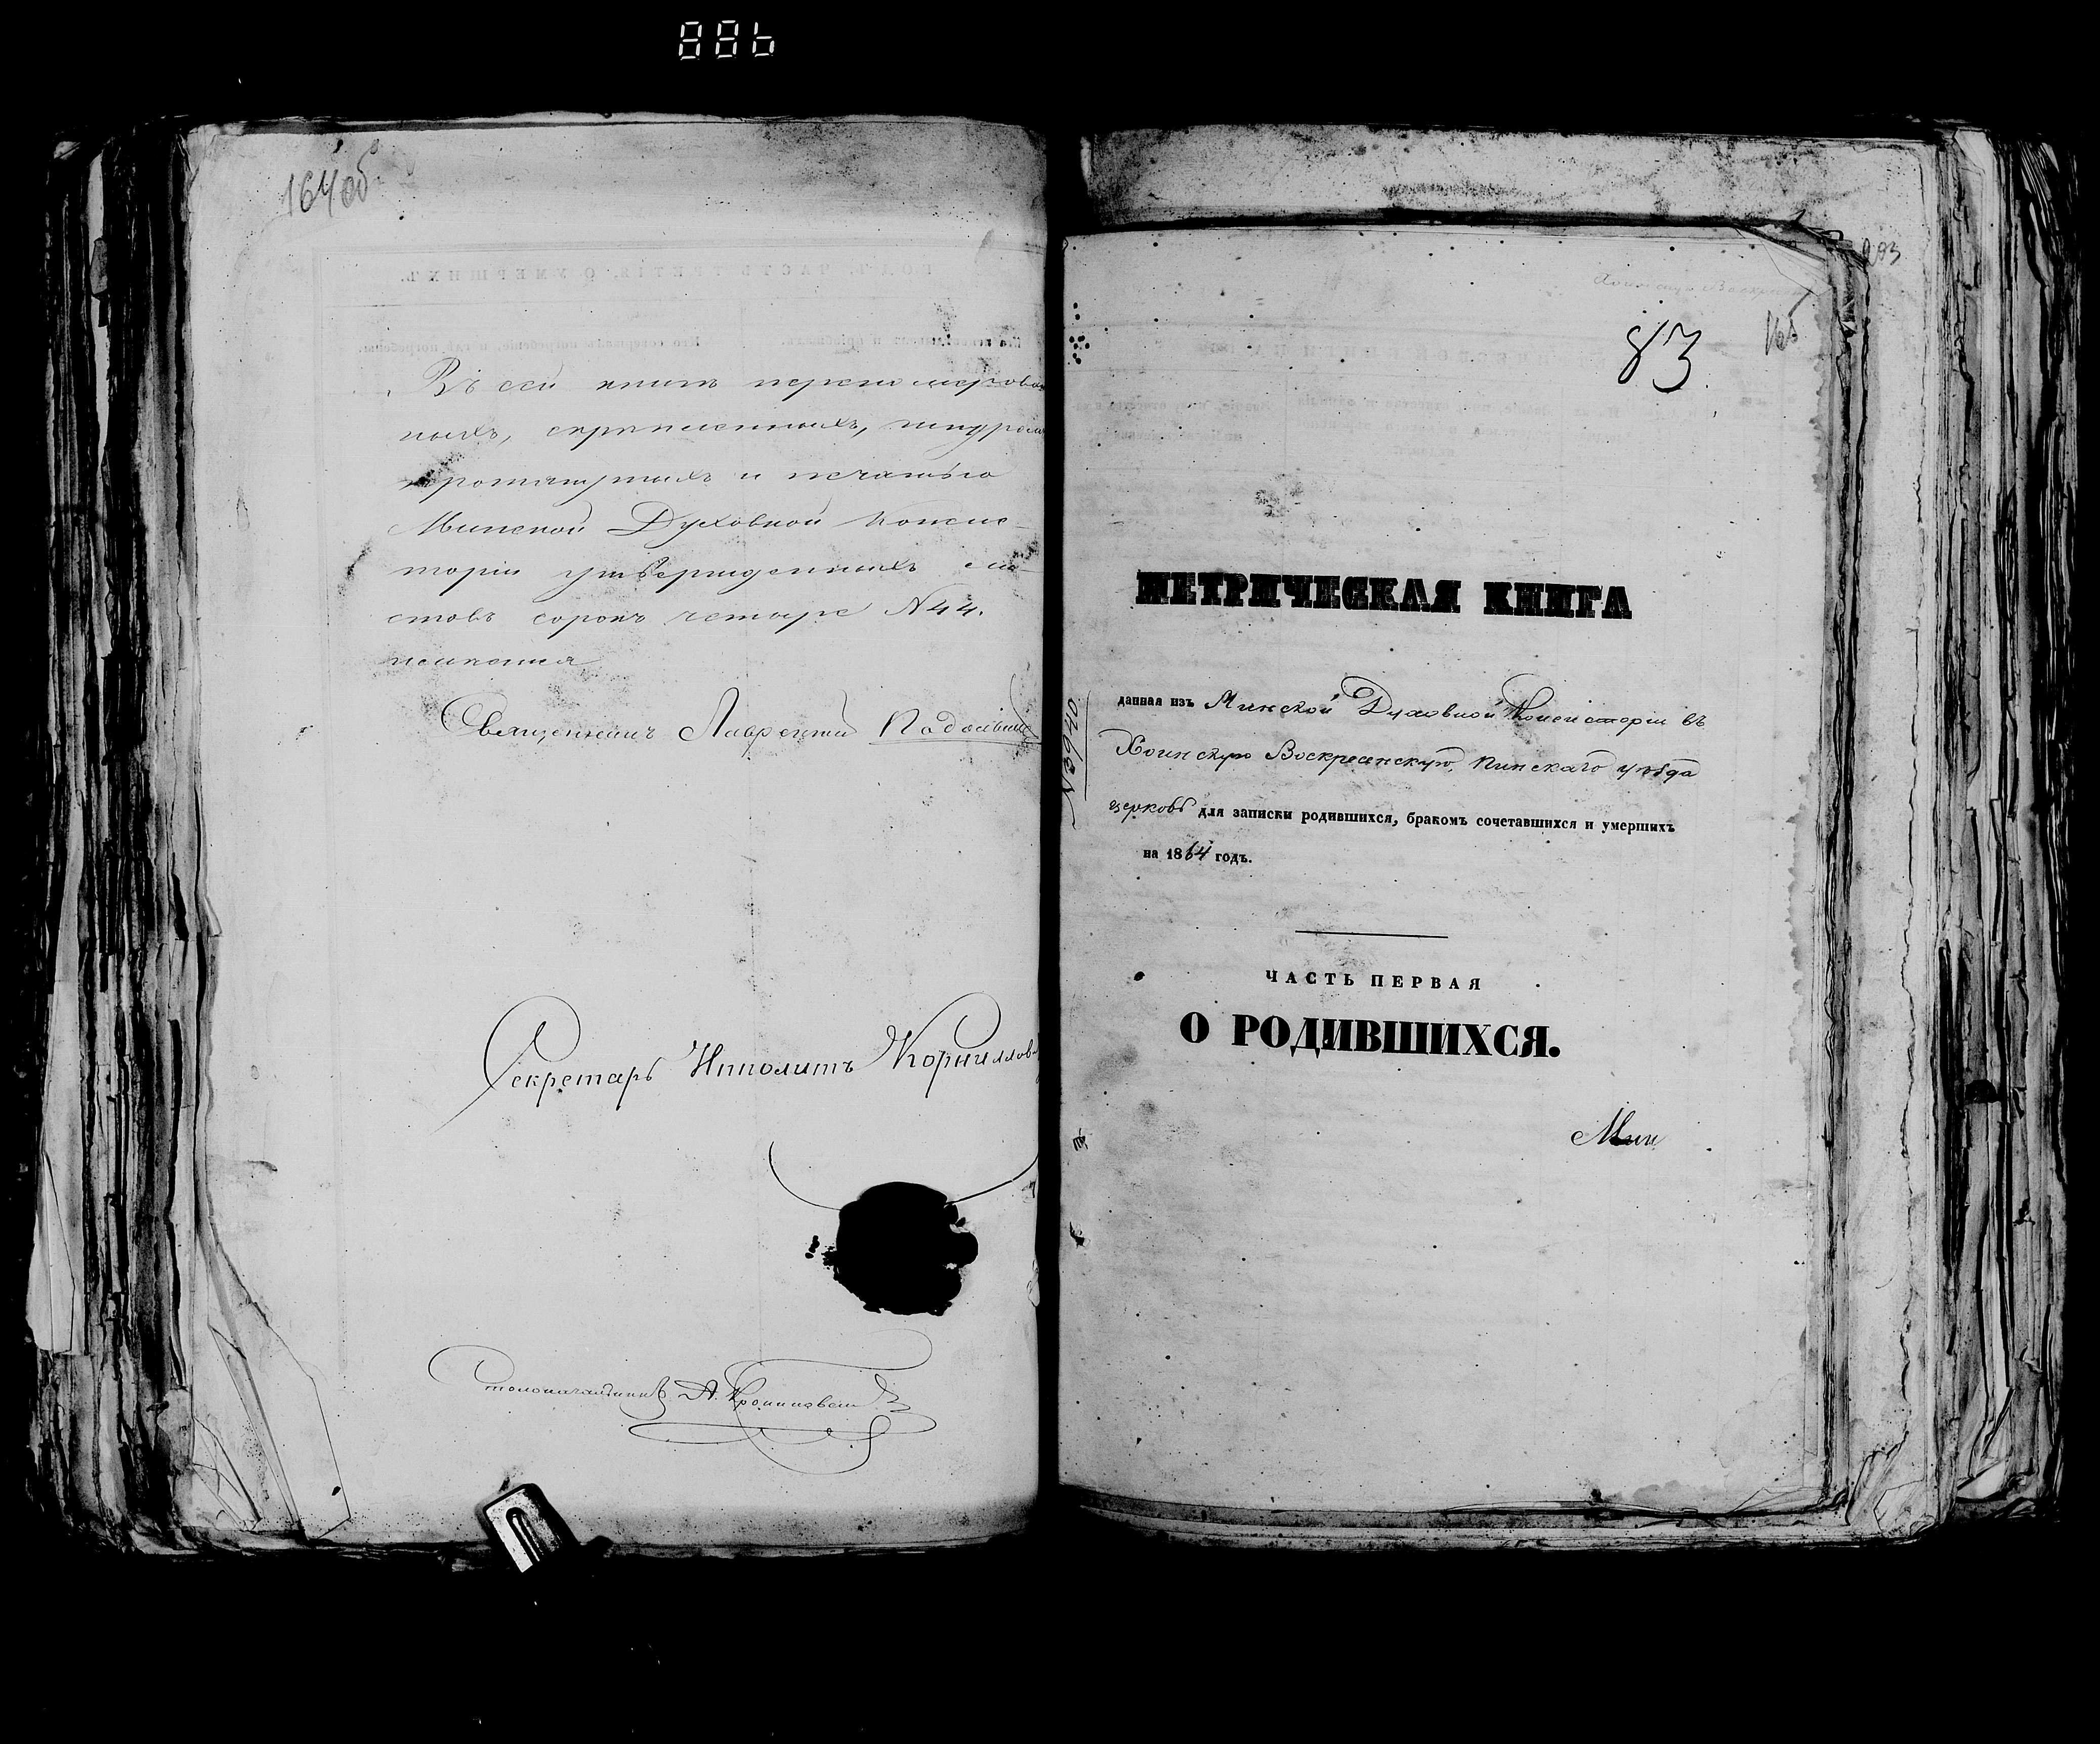 886
164об
Въ сей книгѣ перенумерован
ныхъ, скрѣпленныхъ, шнуромъ
протянутыхъ и печатью
Минской Духовной Консис-
торіи утвержденныхъ лис-
товъ сорокъ четыре N44.
Священникъ Лаврентій
Секретарь Ипполитъ Корнилов
Столоначальникъ А.
83
165
N3940
МЕТРИЧЕСКАЯ КНИГА
данная изъ Минской Духовной Консисторіи въ
Хоинскую Воскресенскую, Пинскаго уѣзда
церковь для записки родившихся, бракомъ сочетавшихся и умершихъ
на 1864 годъ.
ЧАСТЬ ПЕРВАЯ
О РОДИВШИХСЯ.
Мин